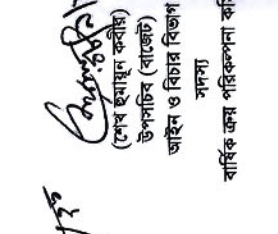 (শেখ হুমায়ূন কবীর)
উপসচিব (বাজেট)
আইন ও বিচার বিভাগ
সদস্য
বার্ষিক ক্রয় পরিকল্পনা